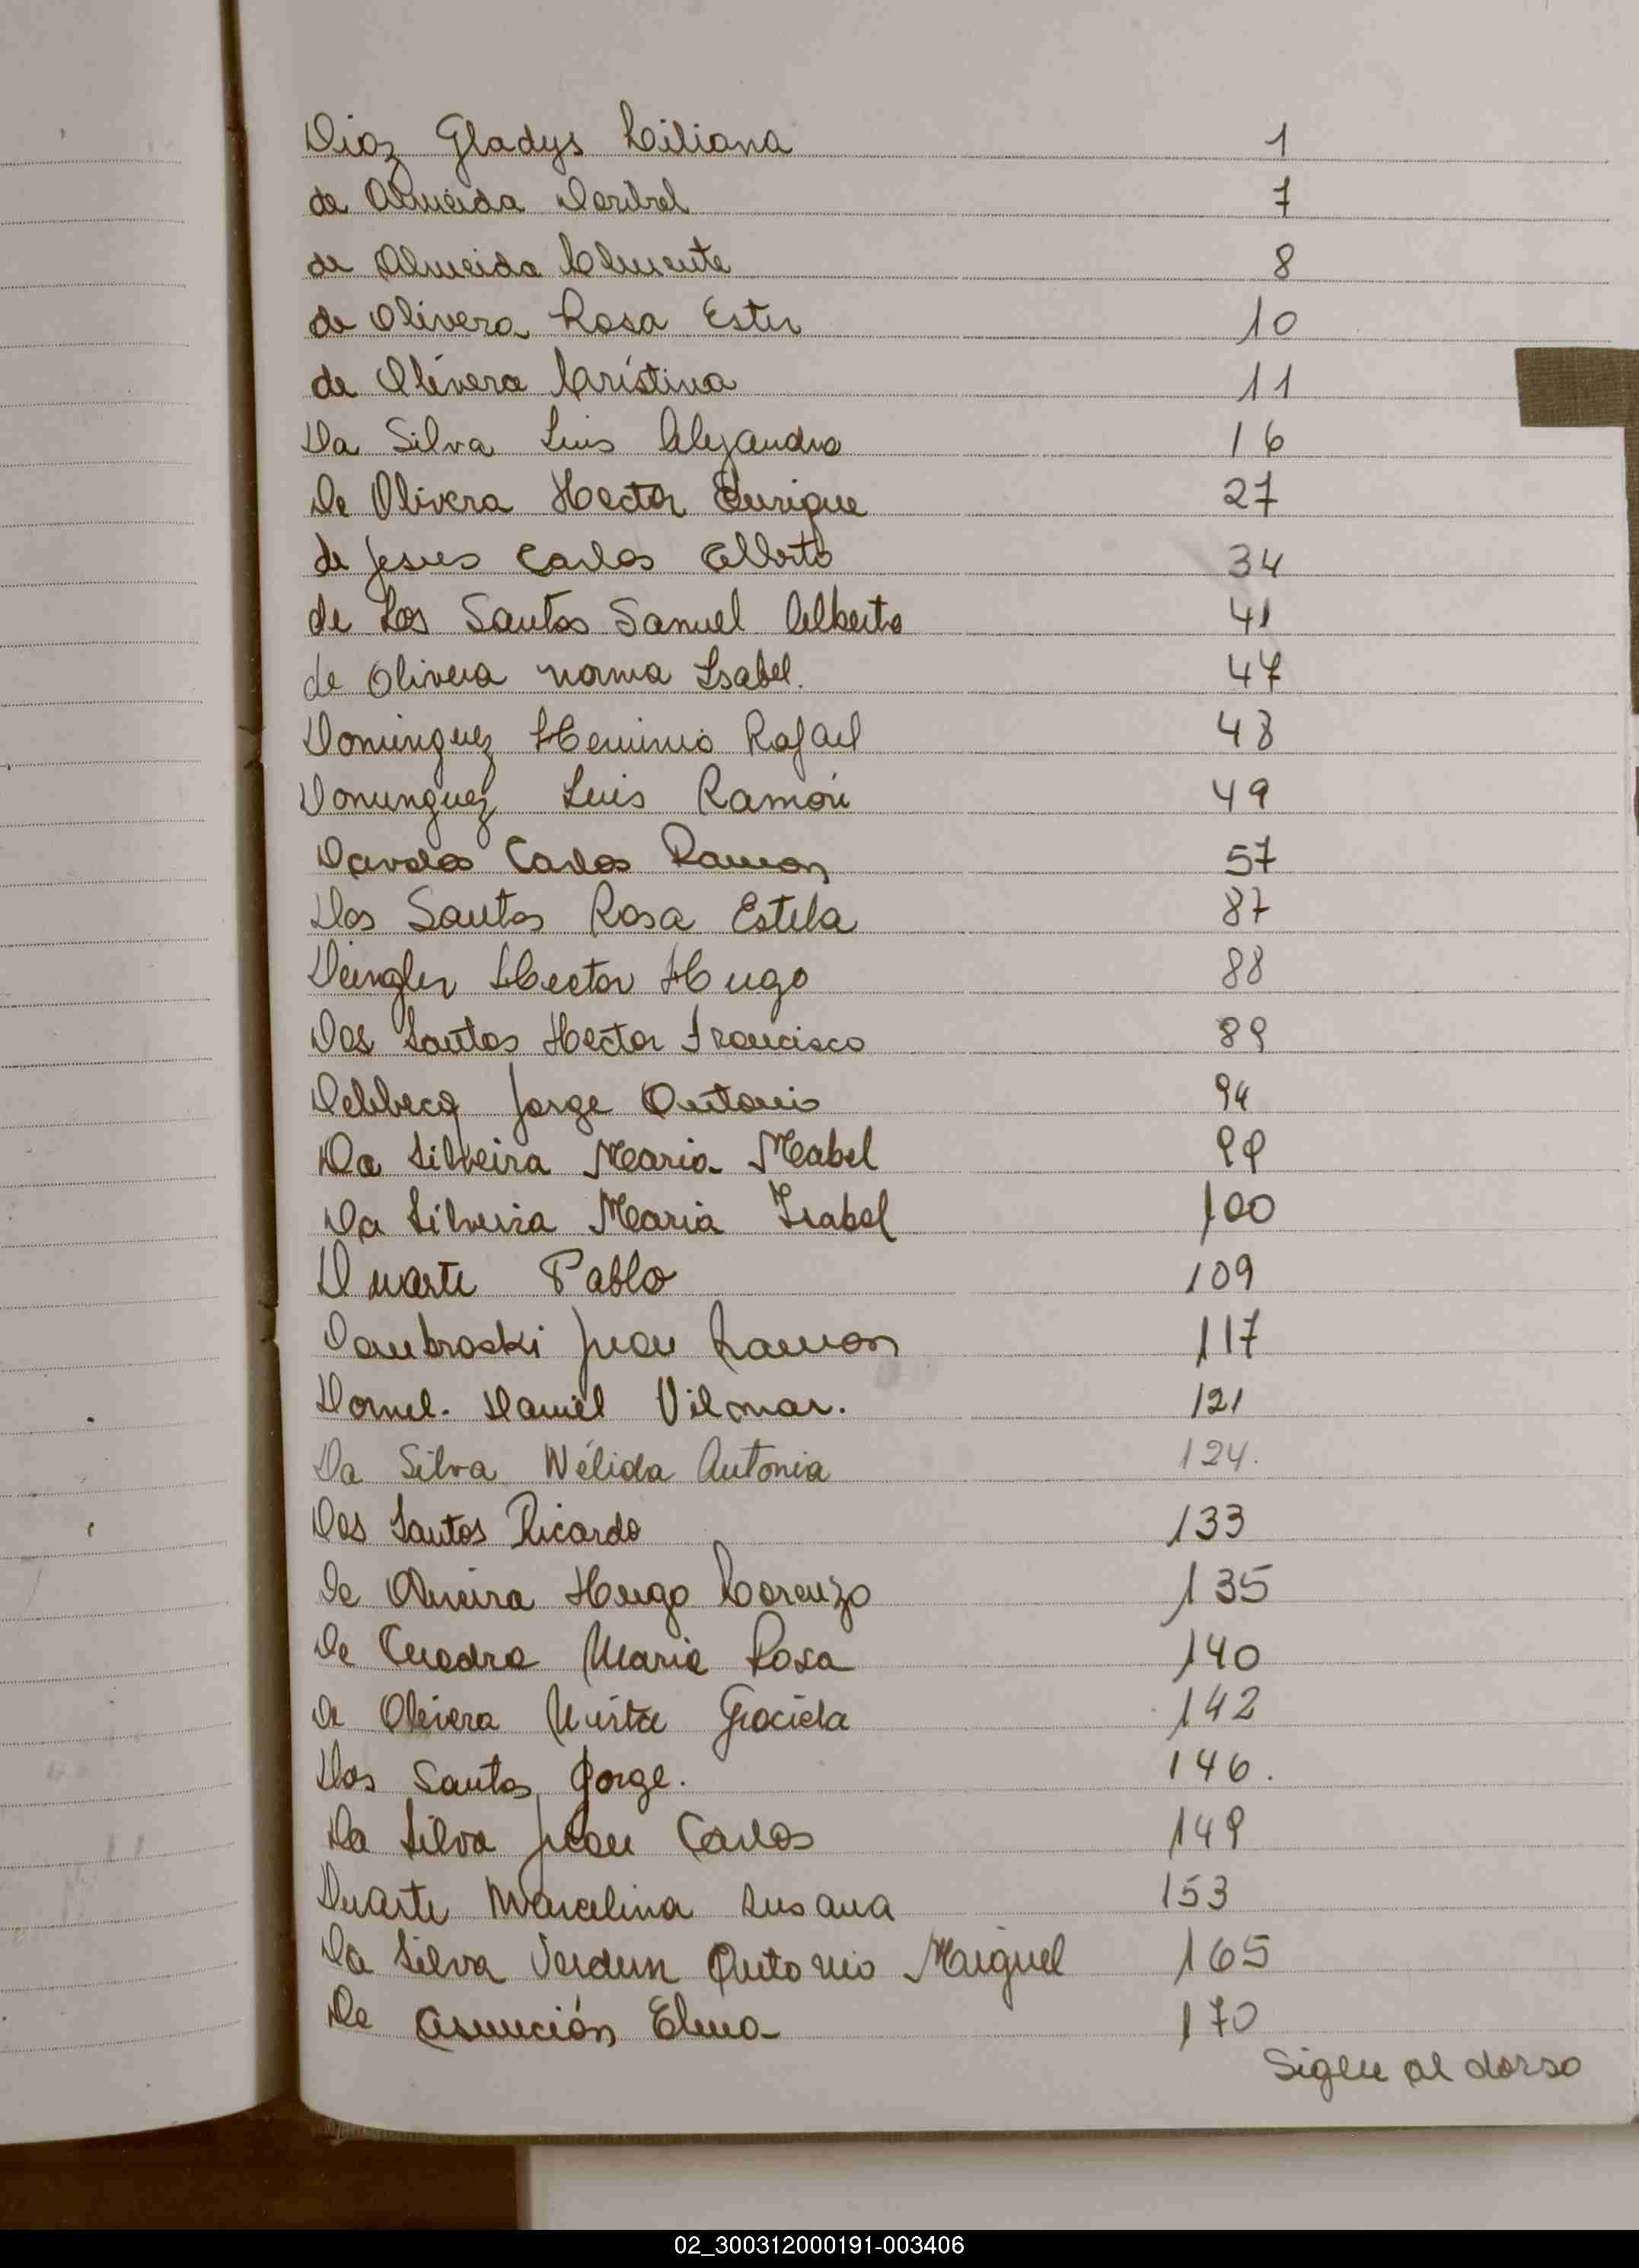 Diaz Gladys Liliana 1
de Almeida 7
de Almeida Clemente 8
de Olivera Rosa Ester 10
de Olivera Cristina 11
Da Silva Luis Alejandro 16
De Olivera Hector Enrique 27
de Jesus Carlos Alberto 34
de Los Santos Samuel Alberto 41
de Olivera norma Isabel. 47
Dominguez Herminio Rafael 48
Dominguez Luis Ramón 49
Carlos Ramon 57
Dos Santos Rosa Estela 87
Hector Hugo 88
Dos Santos Hector Francisco 89
Delbecq Jorge Antonio 94
Da Silveira Maria Mabel 99
Da Silveira Maria Isabel 100
Duarte Pablo 109
Dambroski Juan Ramon 117
Dornel. Daniel Vilmar. 121
Da Silva Nélida Antonia 124.
Dos Santos Ricardo 133
De Hugo Lorenzo 135
De Cuadra Maria Rosa 140
de Olivera Mirta Graciela 142
Dos Santos Jorge. 146.
Da Silva Juan Carlos 149
Duarte Marcelina Susana 153
Da Silva Verdun Antonio Miguel 165
De Asunción Elena 170
Sigue al dorso
02_300312000191-003406